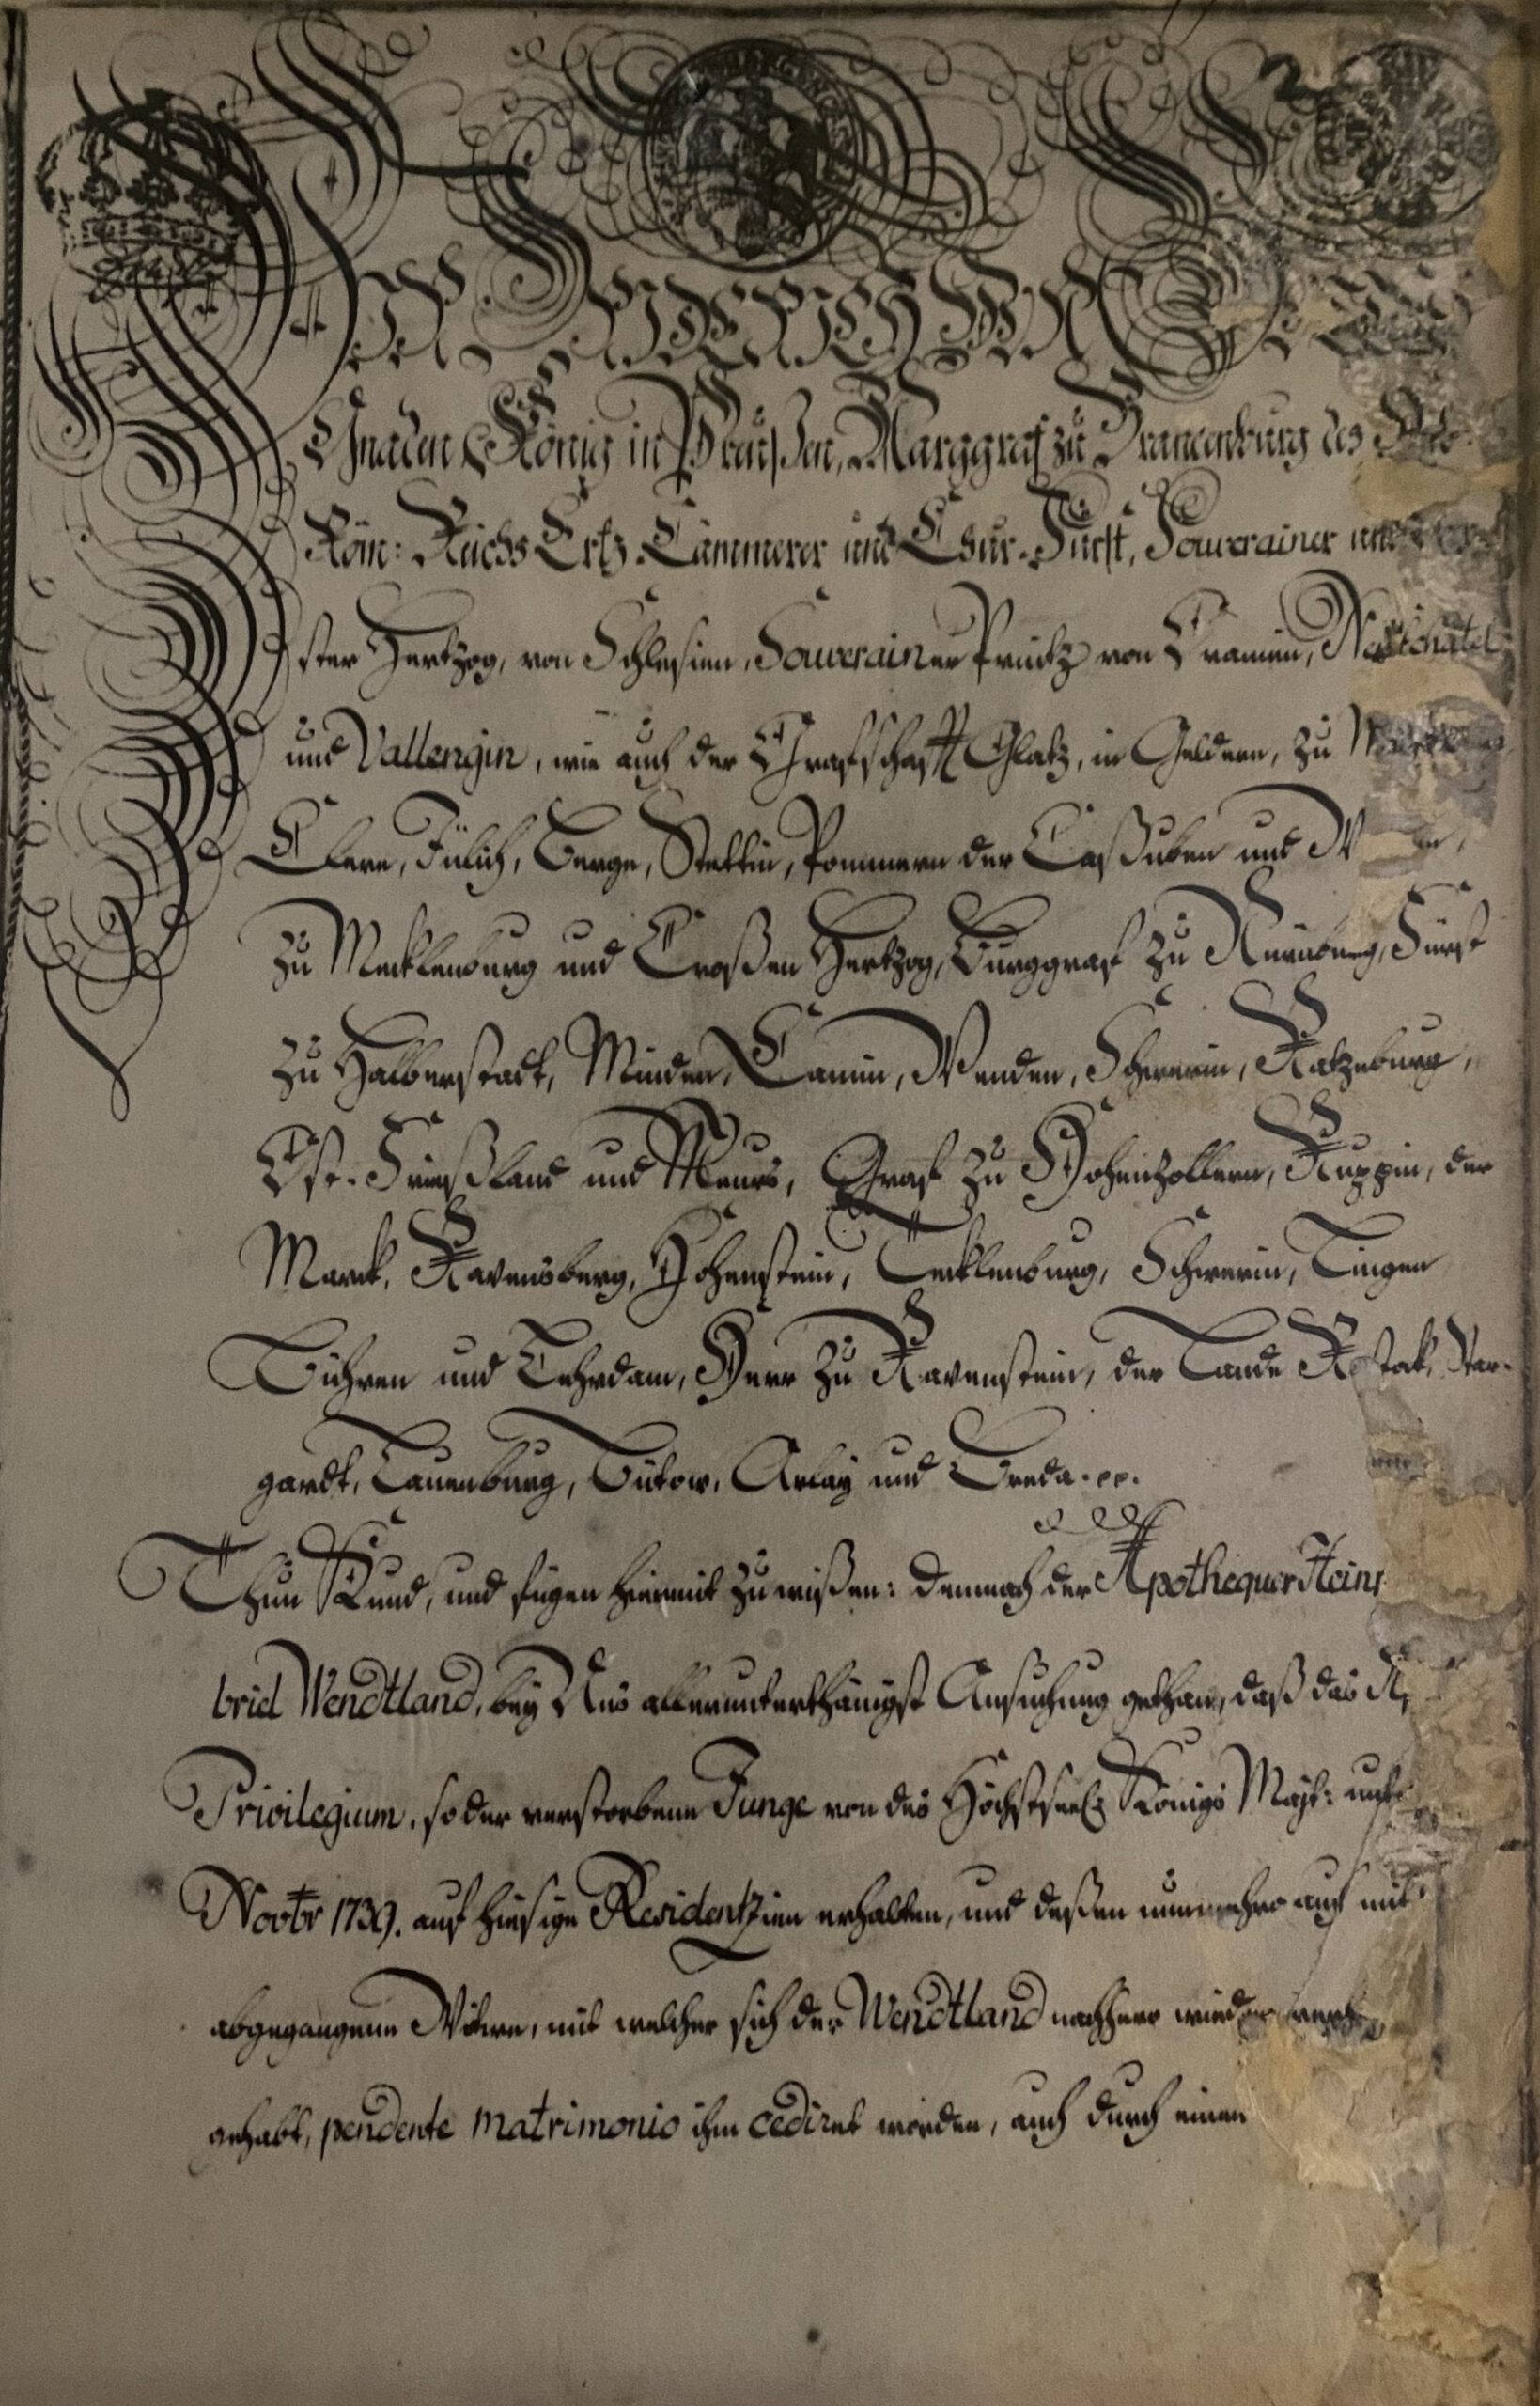 Wir FRIDERICH von Gottes
Gnaden König in Preußen, Marggraf zu Brandenburg des
Röm: Reichs Ertz-Cämmerer und Chur-Fürst, Souverainer und
ster Hertzog, von Schlesien, Souverainer Printz von Oranien, Neufchatel
und Vallengin, wie auch der Grafschafft Glatz, in Geldern, zu
Cleve, Jülich, Berge, Stettin, Pommern der Caßuben und
zu Mecklenburg und Croßen Hertzog, Burggraf zu Nürnberg, Fürst
zu Halberstadt, Minden, Camin, Wenden, Schwerin, Ratzeburg,
Ost-Frießland und Meurs, Graf zu Hohenzollern, Ruppin, der
Marck, Ravensberg, Hohenstein, Tecklenburg, Schwerin, Lingen
Bühren und Lehrdam, Herr zu Ravenstein, der Lande Rostok, Star-
gardt, Lauenburg, Bütow, Arlay und Breda. pp.
Thun Kund, und fügen hiermit zu wißen: demnach der Apothequer
briel Wendtland, bey Uns allerunterthänigst Ansuchung gethan, daß das
Privilegium, so der verstorbene Junge von des Höchstseel: Königs Majt:
Novbr 1739. auf hiesige Residentzien erhalten, und deßen nunmehro auch mit
abgegangene Witwe, mit welcher sich der Wendtland nachhero wieder
gehabt, pendente matrimonio ihm cediret worden, auch durch einen